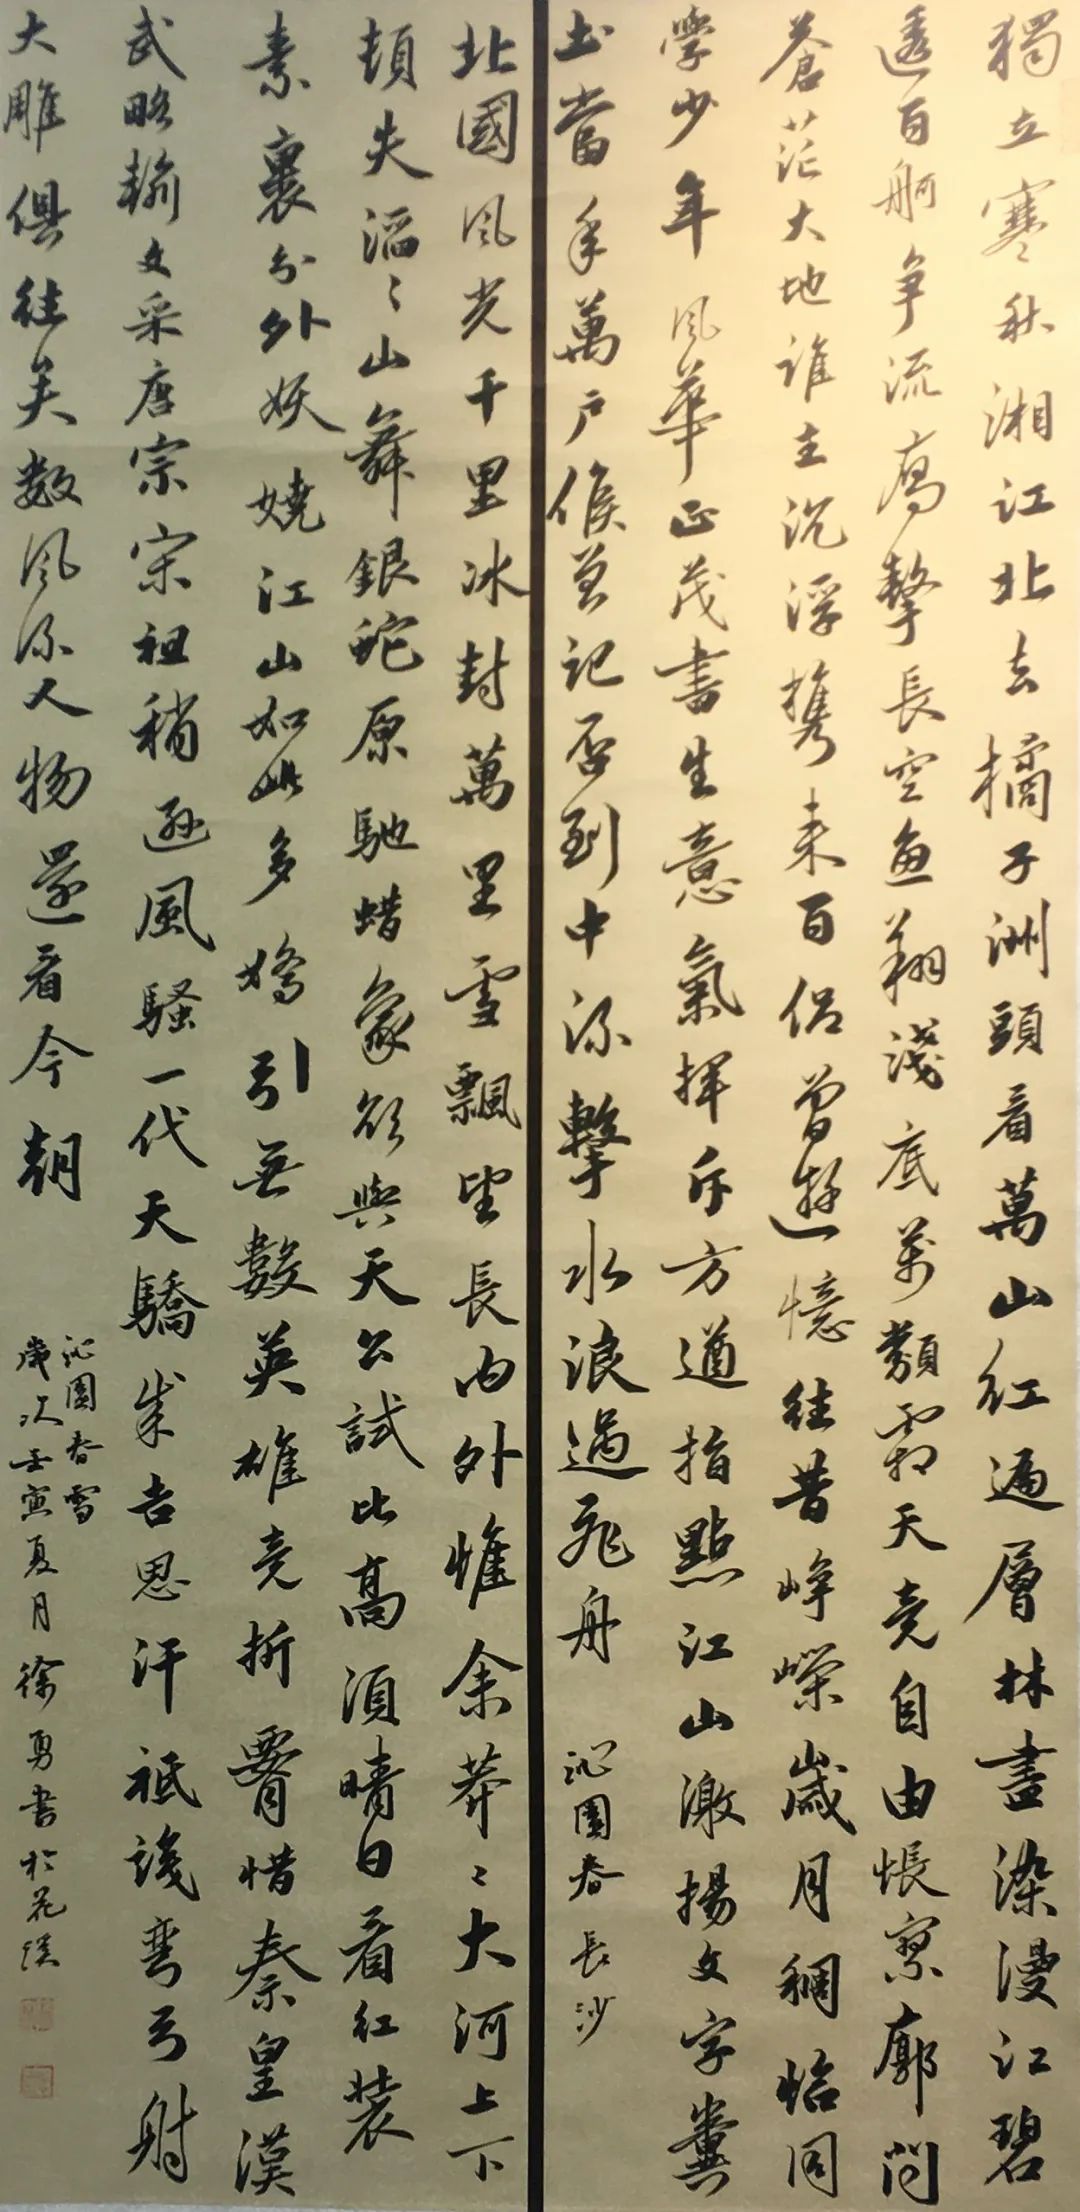 獨立寒秋湘江北去橘子洲頭看萬山紅遍層林盡染漫江碧
透百舸争流鷹擊長空魚翔淺底萬類霜天競自由悵寥廓問
蒼茫大地誰主沉浮攜来百侣曾遊憶往昔崢嶸歲月稠恰同
學少年風華正茂書生意氣揮斥方遒指點江山激揚文字糞
土當年萬户侯曾記否到中流擊水浪遏飛舟
沁園春長沙
北國風光千里冰封萬里雪飄望長内外惟余莽〻大河上下
頓失滔〻山舞銀蛇原馳蜡象欲與天公試比高須晴日看红裝
素裹分外妖嬈江山如此多嬌引無數英雄競折腰惜秦皇漢
武略輸文采唐宗宋祖稍遜風騷一代天驕成吉思汗祇識彎弓射
大雕俱往矣數風流人物還看今朝
沁園春雪
歲次壬寅夏月徐勇書於花溪